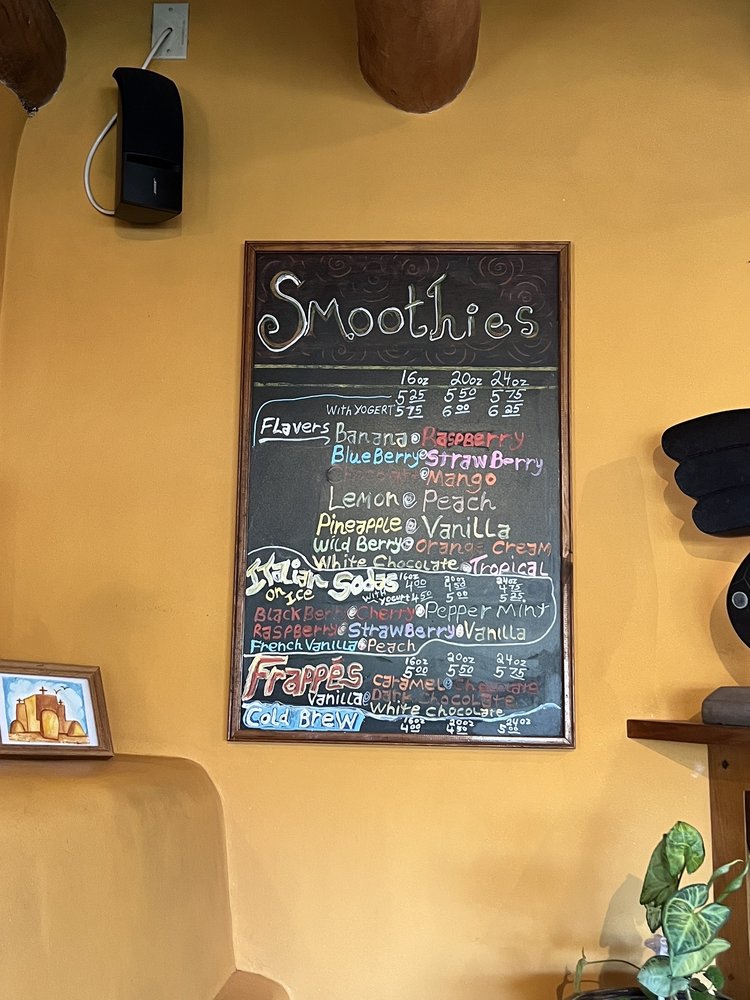 BOSE
Smoothies
16oz 20oz 24oz
5 25 5 50 5 75
With YOGERT 5 75 6 00 6 25
Flavers
Banana Raspberry
BlueBerry StrawBerry
Chocolate Mango
Lemon Peach
Pineapple Vanilla
Wild Berry Orange Cream
White Chocolate Tropical
Italian Sodas 16oz 20oz 24oz
4 00 4 50 4 75
on Ice with yogurt 4 50 5 00 5 25
BlackBerry Cherry PepperMint
Raspberry StrawBerry Vanilla
French Vanilla Peach
Frappés 16oz 20oz 24oz
5 00 5 50 5 75
caramel Chocolate
Vanilla Dark Chocolate
White Chocolate
Cold Brew 16oz 20oz 24oz
4 00 4 50 5 00